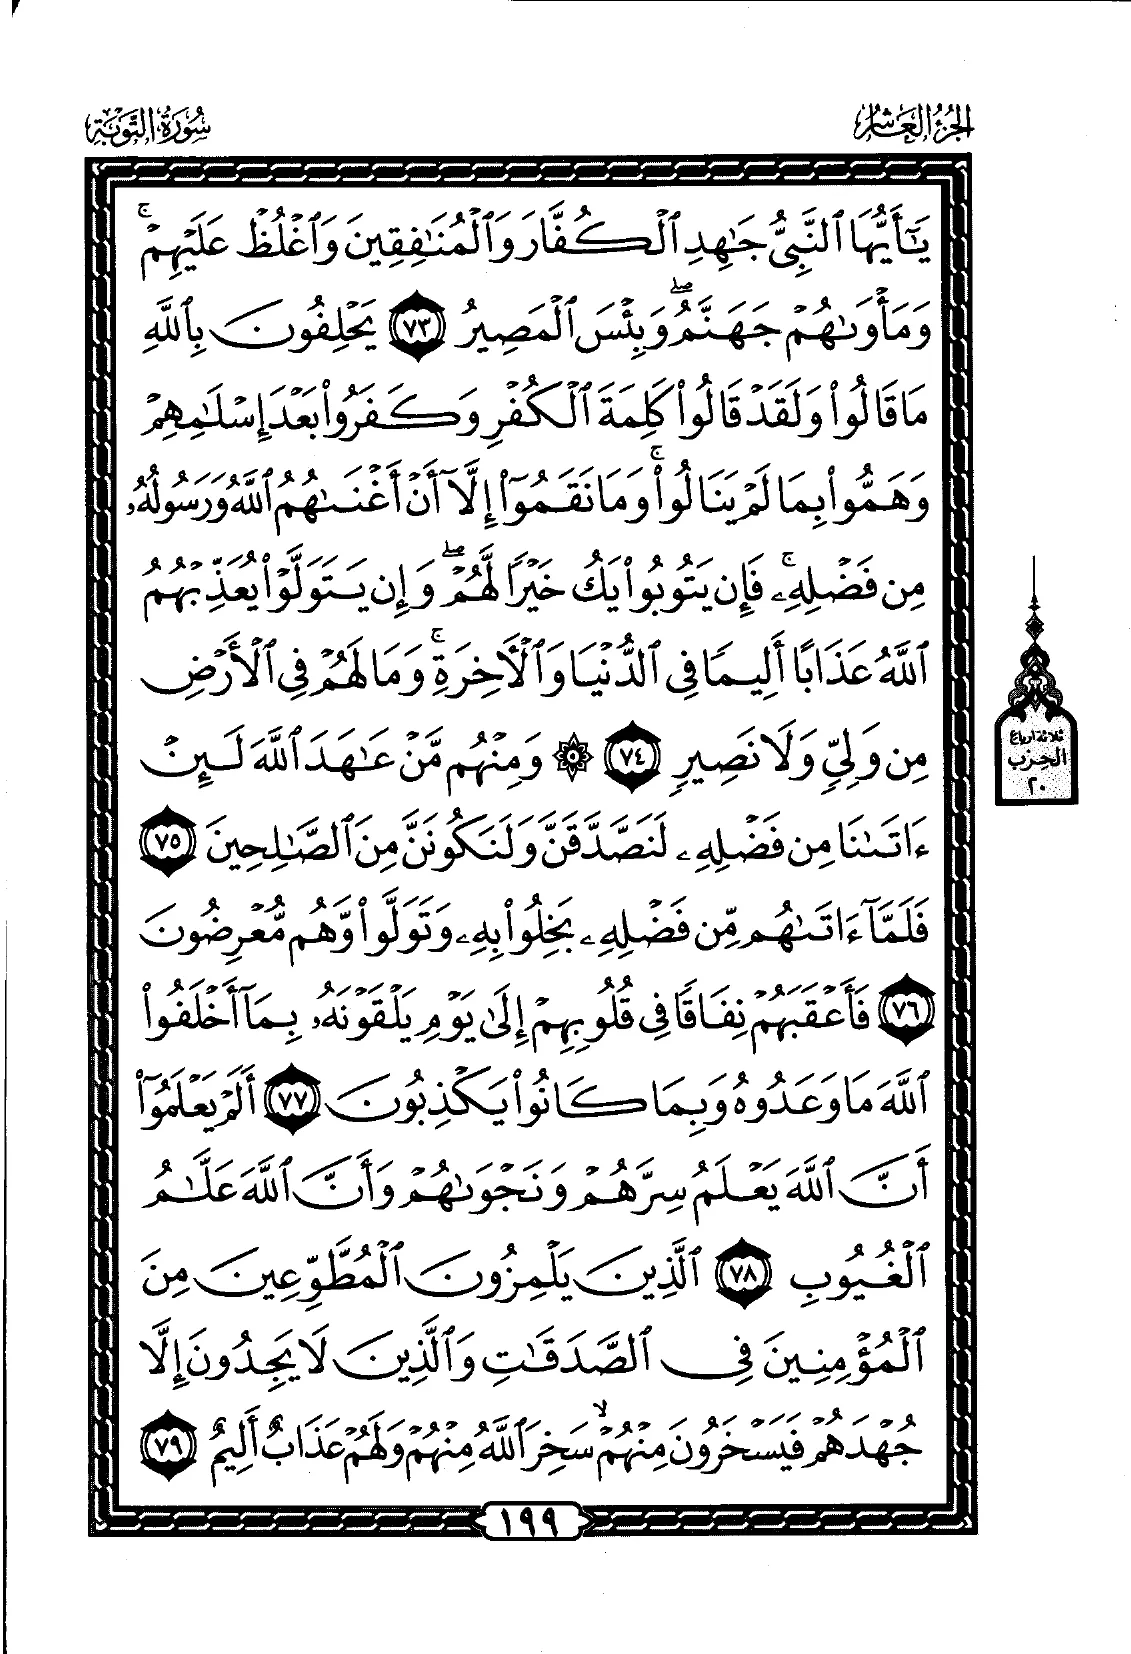 الجزء العاشر
سورة التوبة
يَٰٓأَيُّهَا ٱلنَّبِىُّ جَٰهِدِ ٱلْكُفَّارَ وَٱلْمُنَٰفِقِينَ وَٱغْلُظْ عَلَيْهِمْ ۚ
وَمَأْوَىٰهُمْ جَهَنَّمُ ۖ وَبِئْسَ ٱلْمَصِيرُ ٧٣ يَحْلِفُونَ بِٱللَّهِ
مَا قَالُوا۟ وَلَقَدْ قَالُوا۟ كَلِمَةَ ٱلْكُفْرِ وَكَفَرُوا۟ بَعْدَ إِسْلَٰمِهِمْ
وَهَمُّوا۟ بِمَا لَمْ يَنَالُوا۟ ۚ وَمَا نَقَمُوٓا۟ إِلَّآ أَنْ أَغْنَىٰهُمُ ٱللَّهُ وَرَسُولُهُۥ
مِن فَضْلِهِۦ ۚ فَإِن يَتُوبُوا۟ يَكُ خَيْرًا لَّهُمْ ۖ وَإِن يَتَوَلَّوْا۟ يُعَذِّبْهُمُ
ٱللَّهُ عَذَابًا أَلِيمًا فِى ٱلدُّنْيَا وَٱلْءَاخِرَةِ ۚ وَمَا لَهُمْ فِى ٱلْأَرْضِ
مِن وَلِىٍّ وَلَا نَصِيرٍ ٧٤ ۞ وَمِنْهُم مَّنْ عَٰهَدَ ٱللَّهَ لَئِنْ
ءَاتَىٰنَا مِن فَضْلِهِۦ لَنَصَّدَّقَنَّ وَلَنَكُونَنَّ مِنَ ٱلصَّٰلِحِينَ ٧٥
فَلَمَّآ ءَاتَىٰهُم مِّن فَضْلِهِۦ بَخِلُوا۟ بِهِۦ وَتَوَلَّوا۟ وَّهُم مُّعْرِضُونَ
٧٦ فَأَعْقَبَهُمْ نِفَاقًا فِى قُلُوبِهِمْ إِلَىٰ يَوْمِ يَلْقَوْنَهُۥ بِمَآ أَخْلَفُوا۟
ٱللَّهَ مَا وَعَدُوهُ وَبِمَا كَانُوا۟ يَكْذِبُونَ ٧٧ أَلَمْ يَعْلَمُوٓا۟
أَنَّ ٱللَّهَ يَعْلَمُ سِرَّهُمْ وَنَجْوَىٰهُمْ وَأَنَّ ٱللَّهَ عَلَّٰمُ
ٱلْغُيُوبِ ٧٨ ٱلَّذِينَ يَلْمِزُونَ ٱلْمُطَّوِّعِينَ مِنَ
ٱلْمُؤْمِنِينَ فِى ٱلصَّدَقَٰتِ وَٱلَّذِينَ لَا يَجِدُونَ إِلَّا
جُهْدَهُمْ فَيَسْخَرُونَ مِنْهُمْ ۙ سَخِرَ ٱللَّهُ مِنْهُمْ وَلَهُمْ عَذَابٌ أَلِيمٌ ٧٩
ثلاثة أرباع
الحزب
٢٠
١٩٩